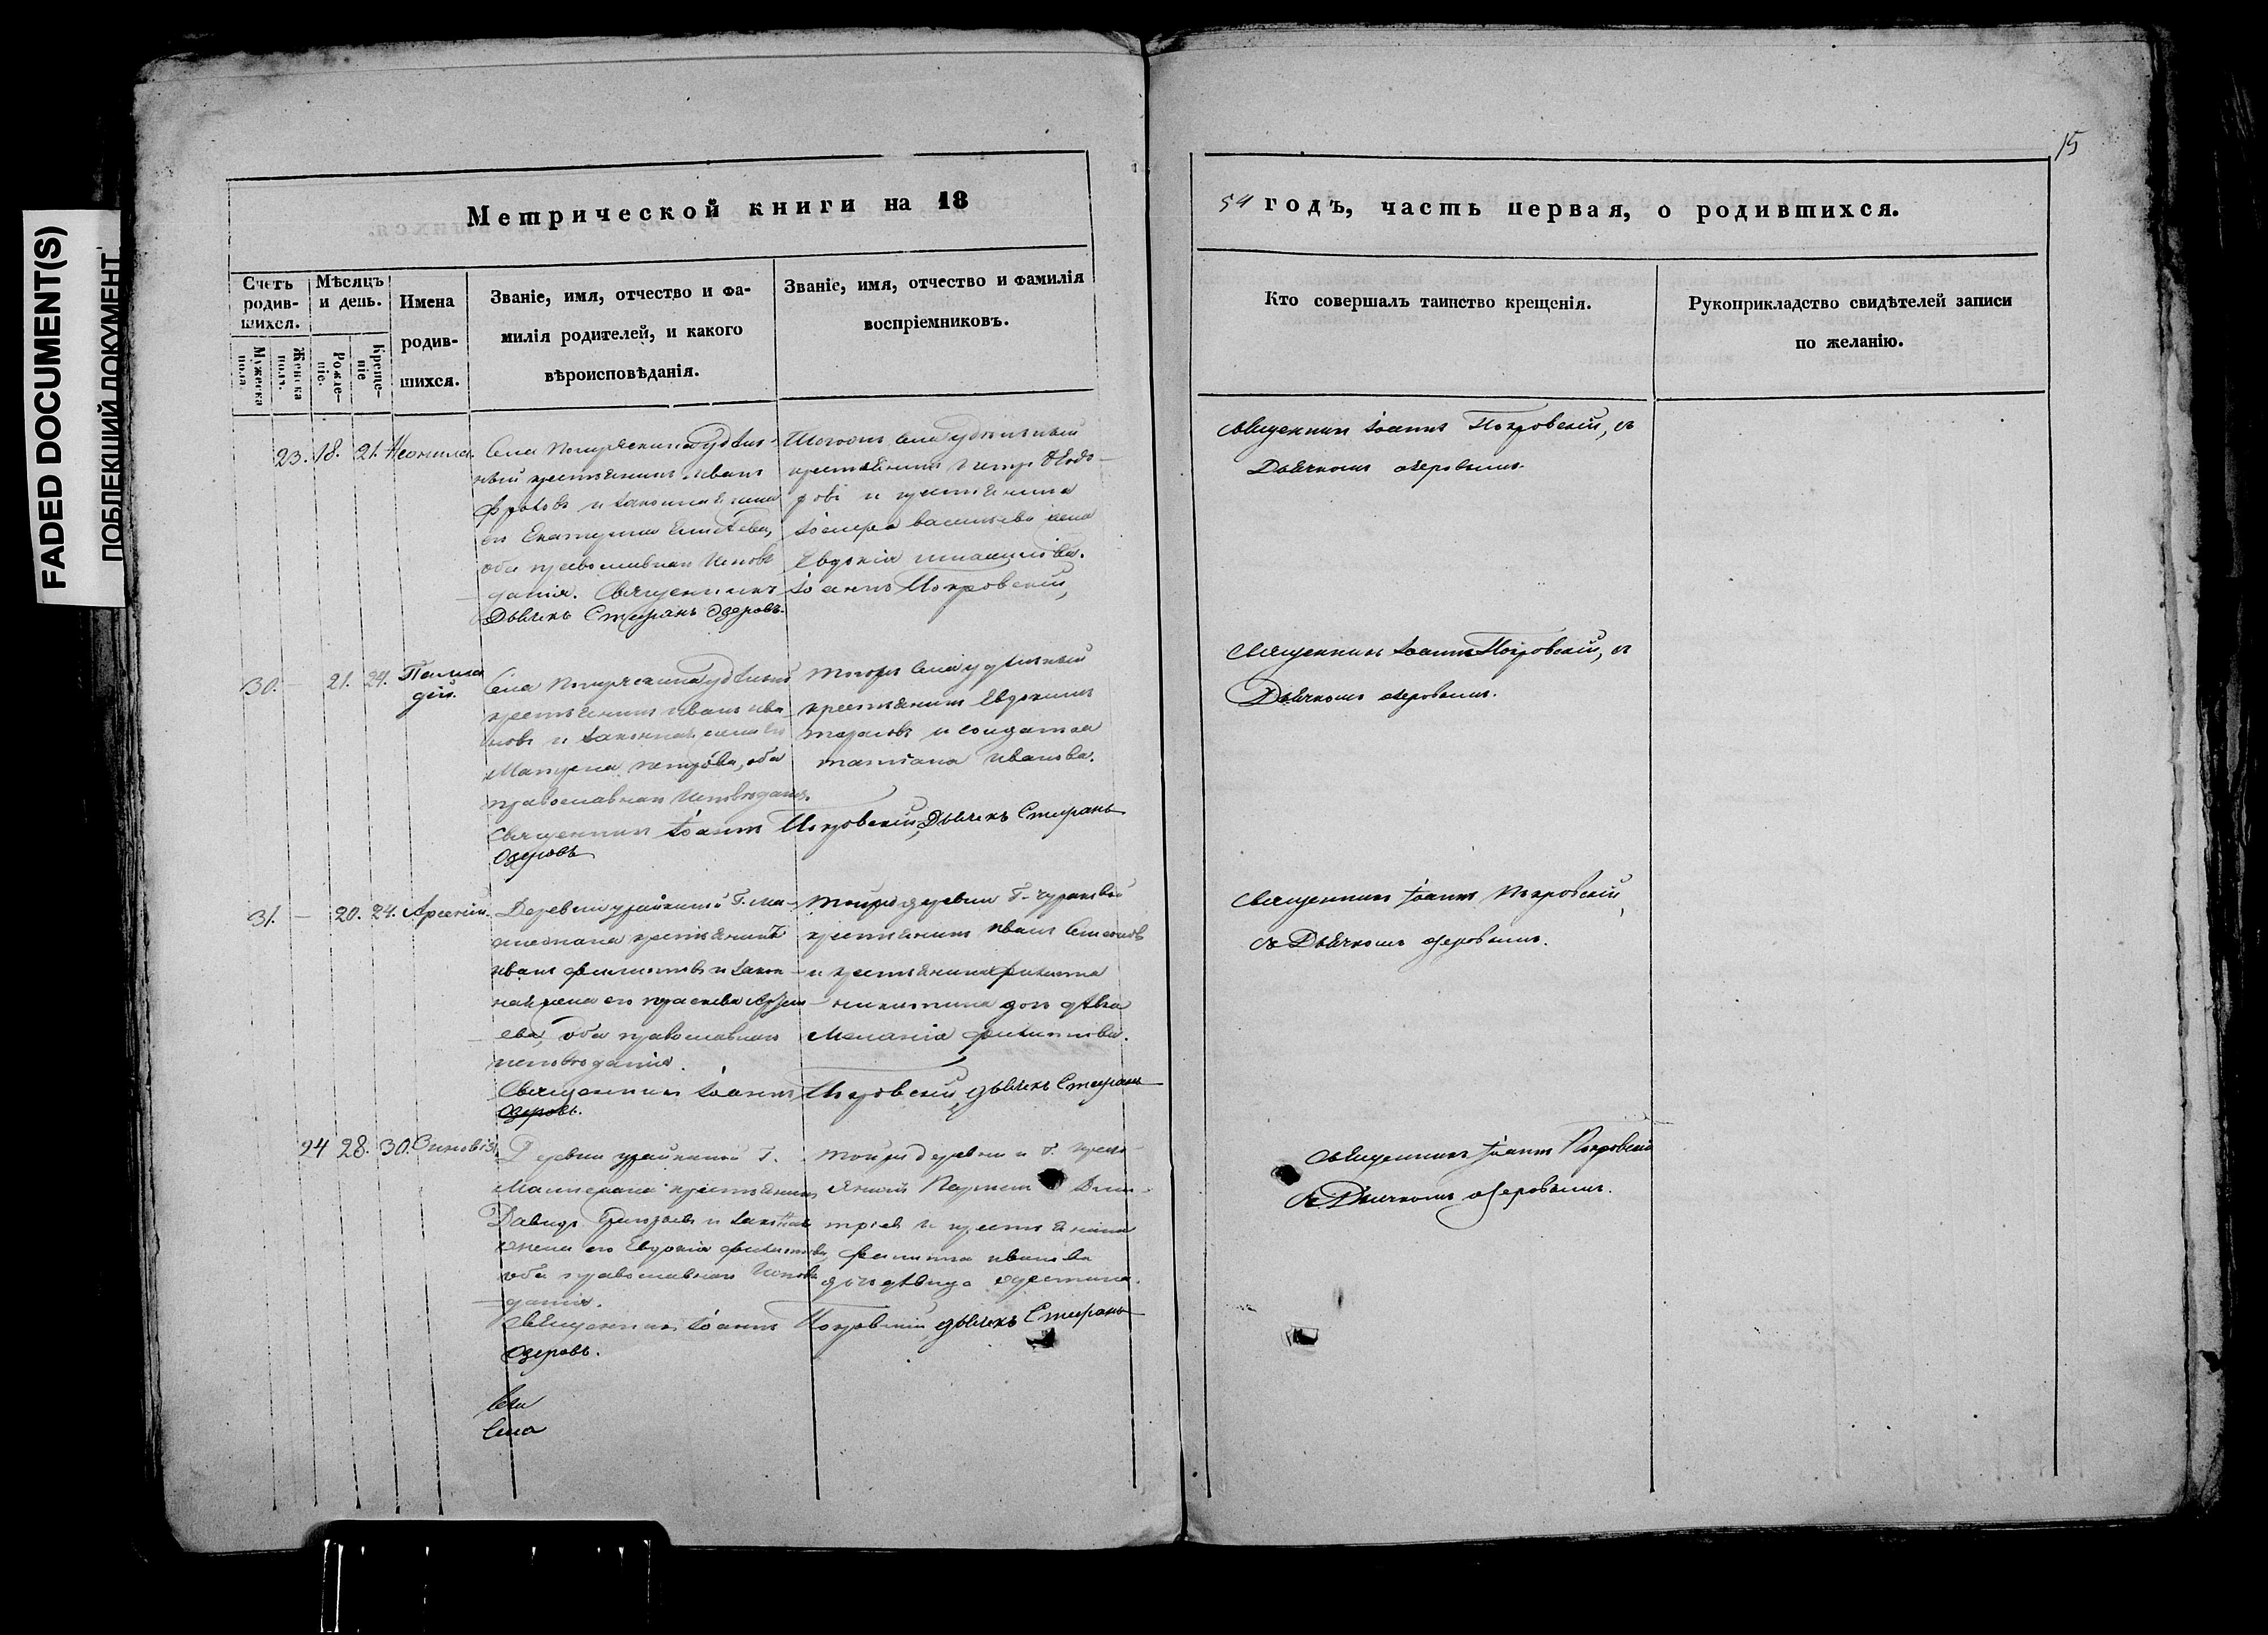 FADED DOCUMENT(S)
ПОБЛЕКШИЙ ДОКУМЕНТ
15
Метрической книги на 18
54 годъ, часть первая, о родившихся.
Счетъ родив-шихся.
Мужеска пола.
Женска пола.
Мѣсяцъ и день.
Рожде-ніе.
Креще-ніе
Имена родив-шихся.
Званіе, имя, отчество и фа-
милія родителей, и какого
вѣроисповѣданія.
Званіе, имя, отчество и фамилія
воспріемниковъ.
Кто совершалъ таинство крещенія.
Рукоприкладство свидѣтелей записи
по желанію.
23. 18. 21. Неонила.
Села удѣль-
ный крестьянинъ Иванъ
Фроловъ и законная жена
его Екатерина
оба православнаго исповѣ
данія. Священникъ Іоаннъ Покровскій,
Дьячекъ Стефанъ Озеровъ.
Тогожъ села удѣльный
крестьянинъ Петръ Ѳедо-
ровъ и крестьянина
Васильева жена
Евдокія
Священникъ Іоаннъ Покровскій, съ
Дьячкомъ Озеровымъ.
30. — 21. 24. Палла
дій.
Села удѣльный
крестьянинъ Иванъ Ива
новъ и законная жена его
Матрена Петрова, оба
православнаго исповѣданія.
Священникъ Іоаннъ Покровскій, Дьячекъ Стефанъ
Озеровъ
Тогожъ села удѣльный
крестьянинъ Евдокимъ
Тарасовъ и солдатка
Татіана Иванова.
Священникъ Іоаннъ Покровскій, съ
Дьячкомъ Озеровымъ.
31. — 20. 24. Арсеній.
Деревни Г.
крестьянинъ
Иванъ Филиповъ и закон
ная жена его Праскева
ева, оба православнаго
исповѣданія.
Священникъ Іоаннъ Покровскій, дьячекъ Стефанъ
Озеровъ.
Тойже деревни Г.
крестьянинъ Иванъ Семеновъ
и крестьянина Филиппа
Никитина дочь дѣвка
Меланія Филиппова.
Священникъ Іоаннъ Покровскій,
съ Дьячкомъ Озеровымъ.
24 28. 30. Зиновія.
Деревни Г.
крестьянинъ
Давидъ Григорьевъ и законная
жена его Евдокія Филиппова,
оба православнаго исповѣ
данія.
Священникъ Іоаннъ Покровскій дьячекъ Стефанъ
Озеровъ.
Тойже деревни Г. кресть-
янинъ Дми-
тріевъ и крестьянина
Филиппа Иванова
дочь дѣвица
Священникъ Іоаннъ Покровскій
съ Дьячкомъ Озеровымъ.
Села
Села